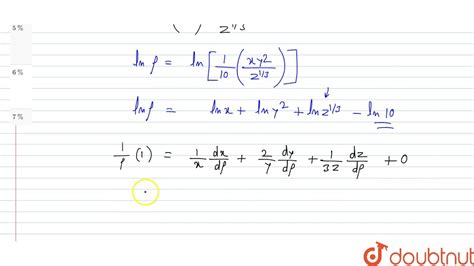 5%
( ) z^1/3
6%
ln ρ = ln[1/10 (xy2/z^1/3)]
7%
lnρ = ln x + ln y² + ln z^1/3 - ln 10
1/ρ (1) = 1/x dx/dρ + 2/y dy/dρ + 1/3z dz/dρ + 0
doubtnut